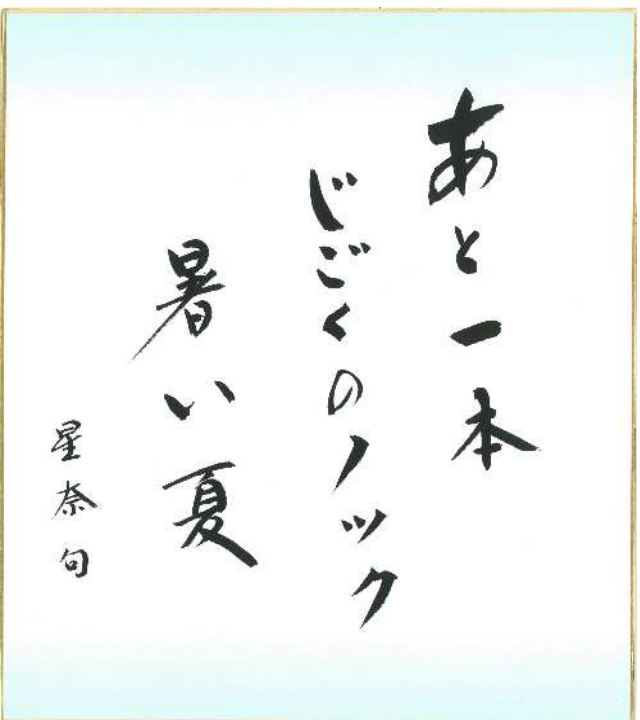 あと一本
じごくのノック
暑い夏
星奈句